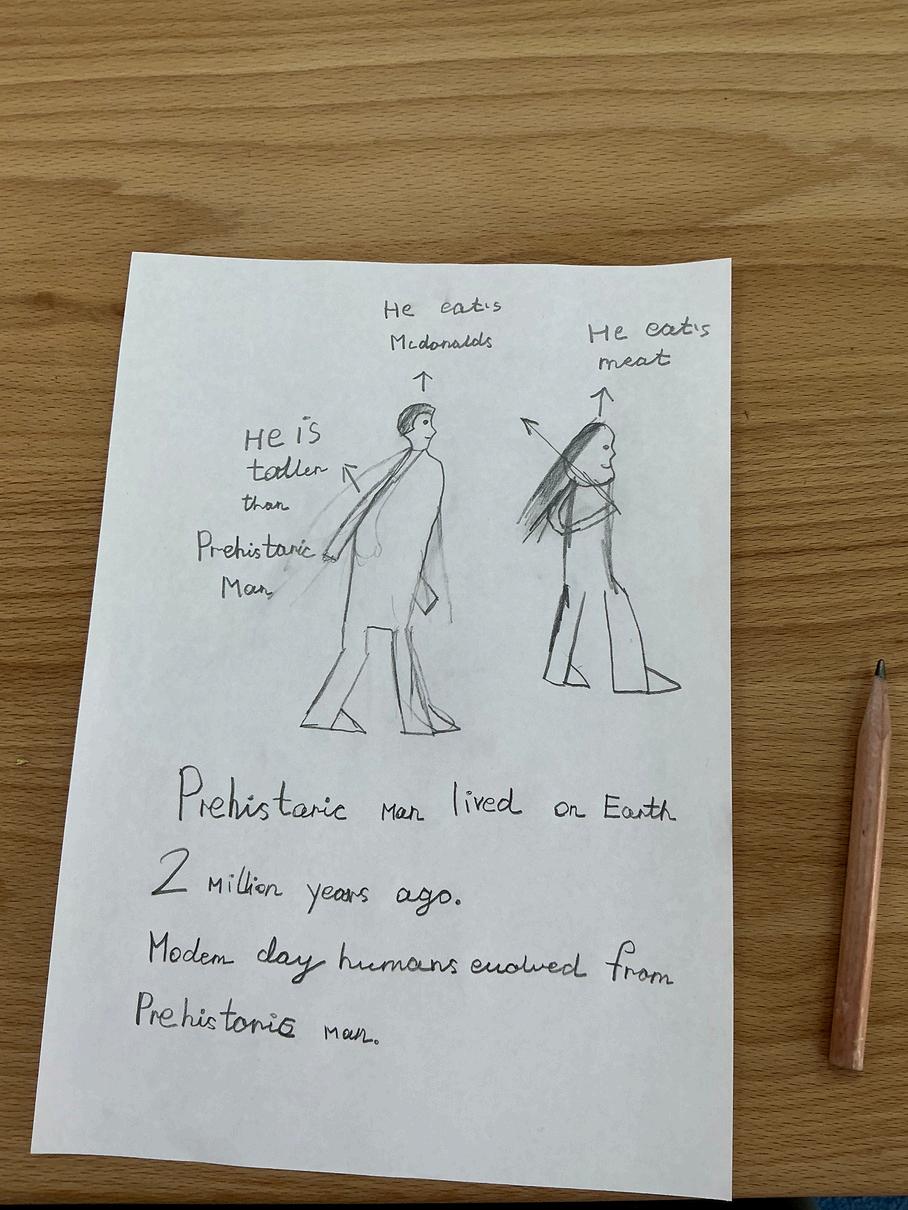 He eats
Mcdonalds
He eats
meat
He is
taller
than
Prehistoric
Man
Prehistoric man lived on Earth
2 million years ago.
Modern day humans evolved from
Prehistoric man.